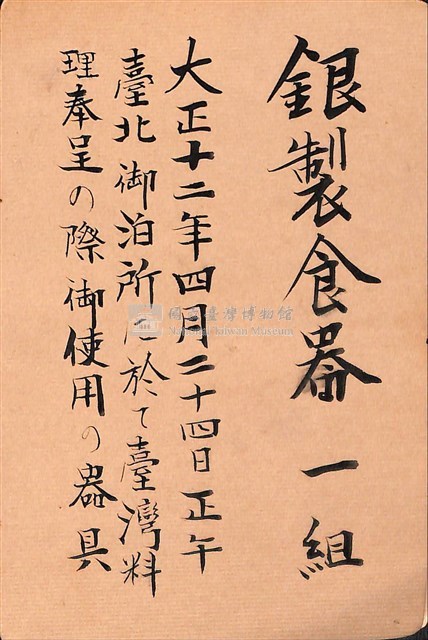 銀製食器 一組
大正十二年四月二十四日正午
臺北御泊所に於て臺灣料
理奉呈の際御使用の器具
國立臺灣博物館
National Taiwan Museum